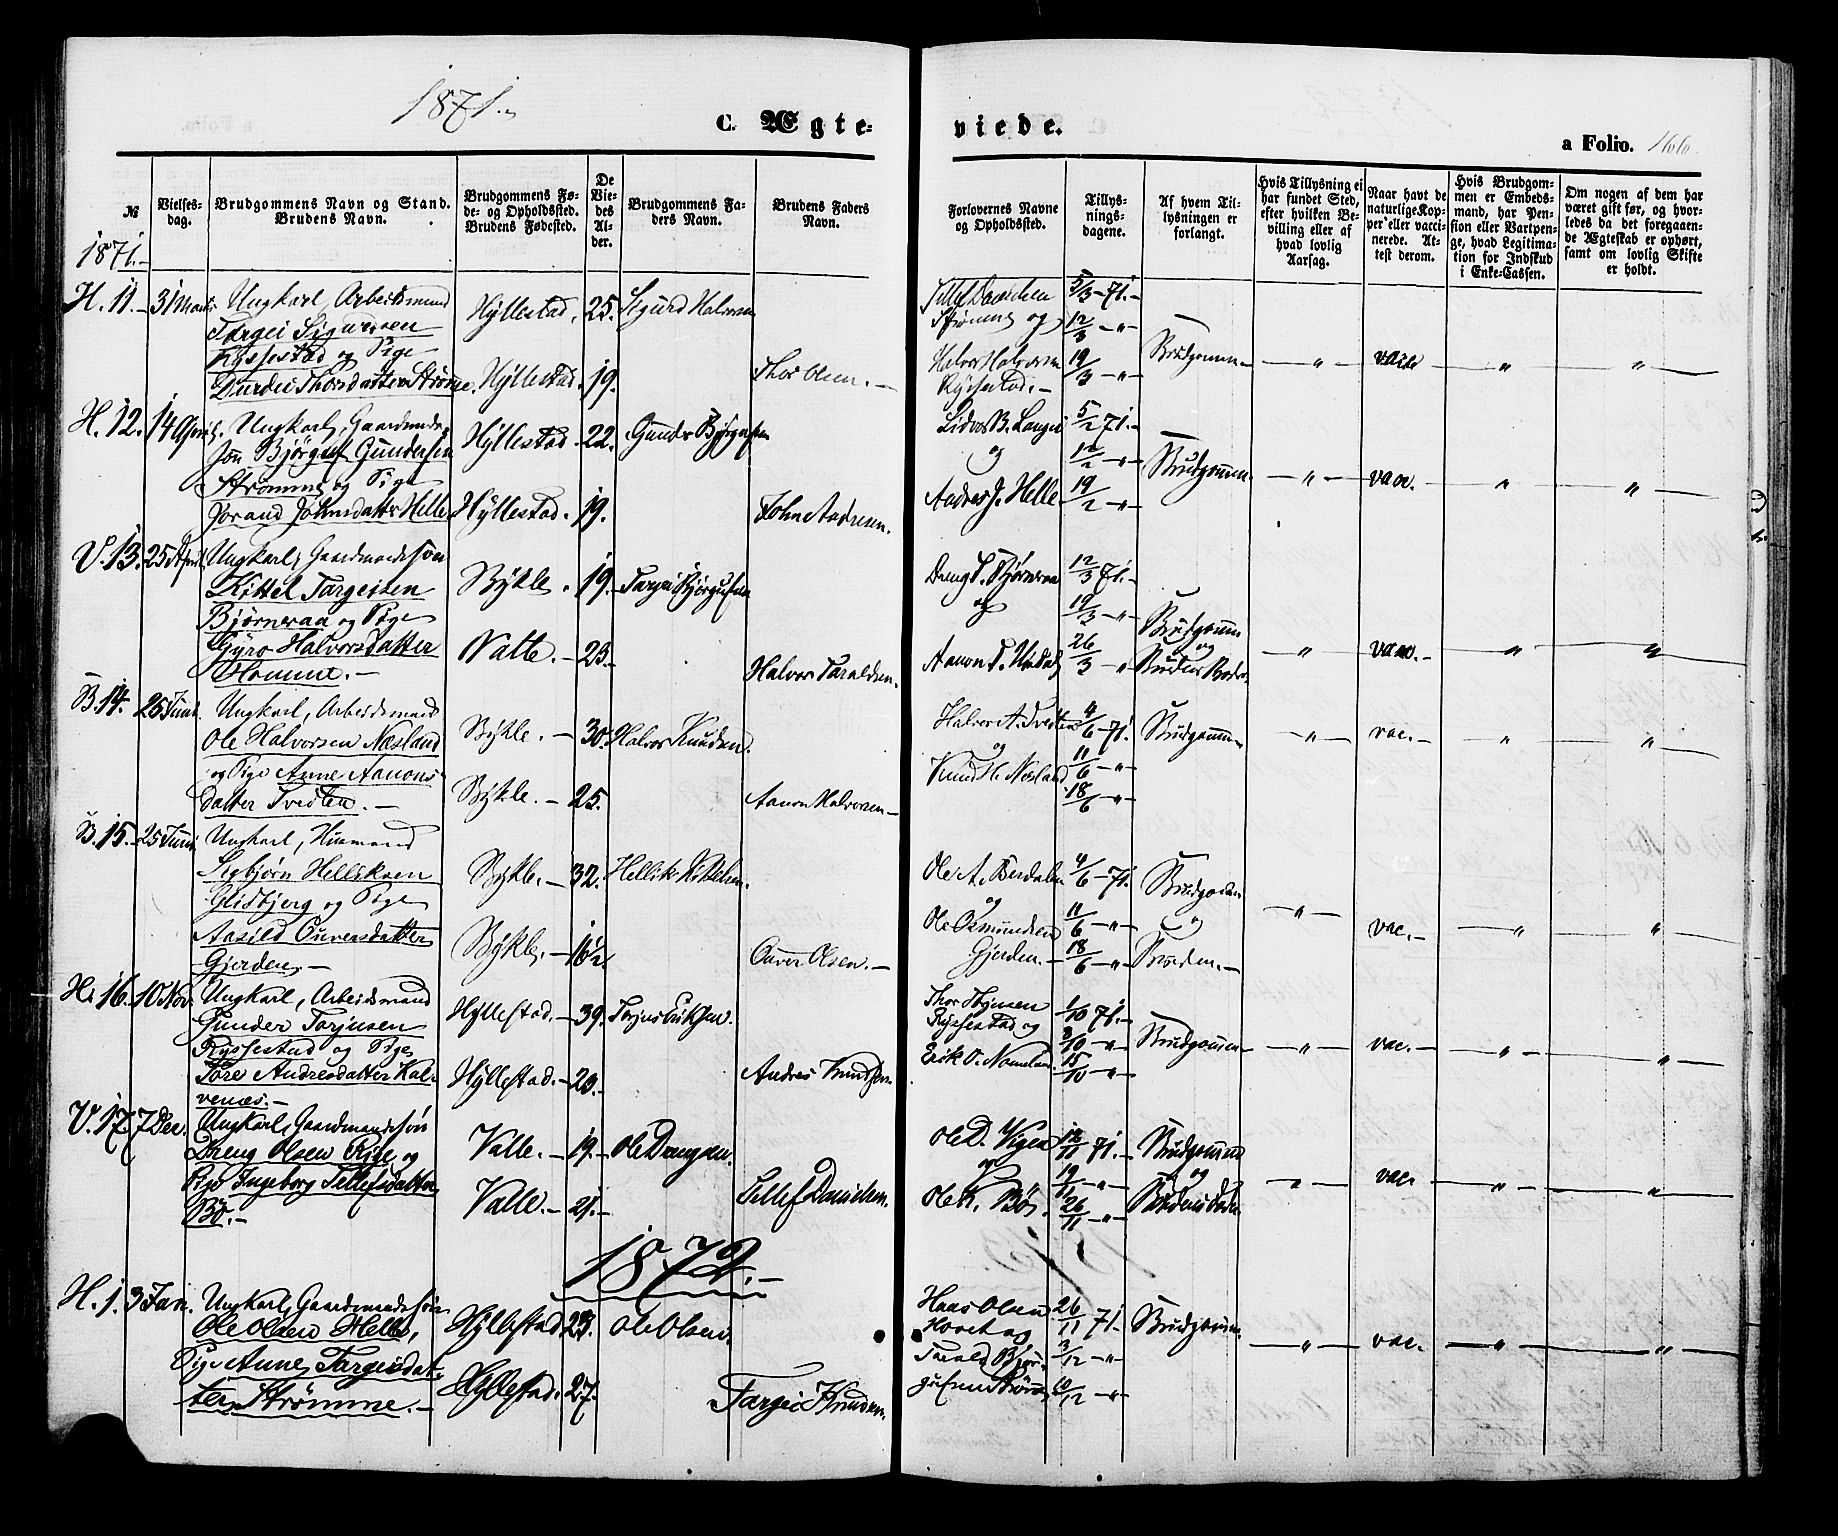 1871.
C. Ægte-
viede.
a Folio. 166.
№
Vielses-
dag.
Brudgommens Navn og Stand.
Brudens Navn.
Brudgommens Fø-
de- og Opholdssted.
Brudens Fødested.
De
Vie-
des
Al-
der.
Brudgommens Fa-
ders Navn.
Brudens Faders
Navn.
Forlovernes Navne
og Opholdssted.
Tillys-
nings-
dagene.
Af hvem Til-
lysningen er
forlangt.
Hvis Tillysning ei
har fundet Sted,
efter hvilken Be-
villing eller af
hvad lovlig
Aarsag.
Naar havt de
naturlige Kop-
per eller vacci-
nerede. At-
test derom.
Hvis Brudgom-
men er Embeds-
mand, har Pen-
sion eller Vartpen-
ge, hvad Legitima-
tion for Indskud
i Enke-Cassen.
Om nogen af dem har
været gift før, og hvor-
ledes da det foregaaen-
de Ægteskab er ophørt,
samt om lovlig Skifte
er holdt.
1871.-
H. 11. - 31 Marts Ungkarl, Arbeidsmand Hyllestad. 25. Sigurd Halvorsen 5/3 - 71. -
Targei Sigurdsen Strømme og 12/3 - " -
Rysestad og Pige Halvor Halvorsen 19/3 - " - Brudgommen - " - vacc " "
Durdei Thorsdatter Strømme. Hyllestad. 19. Thor Olsen. - Rysestad. -
H. 12. 14 April. Ungkarl, Gaardmand, Hyllestad. 22. Gunder Bjørgufsen Lidvor B. Langei 5/2 71. -
Jon Bjørguf Gundersen og 12/2 - " -
Strømme og Pige Brudgommen. - " - vacc. " "
Jorand Johnsdatter Helle Hyllestad. 19. John Andresen. Andres J. Helle 19/2 - "
V. 13. 25 April. Ungkarl, Gaardmandssøn Bykle. 19. Targei Bjørgufsen Dreng T. Bjørneraa 12/3 71. -
Kittel Targeisen og 19/3 - "
Bjørneraa og Pige Brudgommen
Gyro Halvorsdatter Valle. - 23. - Aanon T. 26/3 - " og - " - vacc. - " "
Homme. - Halvor Taraldsen. Brudens Fader.
B. 14. 25 Juni. Ungkarl, Arbeidsmand Bykle. - 30. Halvor Knudsen. Halvor A. Tveiten 4/6 - 71. Brudgommen - " - vac. - " "
Ole Halvorsen Næsland og 11/6 - " -
og Pige Anne Aanons- Knud H. Næsland
datter Tveiten. - Bykle. - 25. Aanon Halvorsen - 18/6 - " -
B. 15. - 25 Juni Ungkarl, Husmand
Sigbjørn Helliksen Bykle. - 32. Hellik Kittelsen. Ole A. Berdalen 4/6 - 71. Brudgommen
Glidbjerg og Pige og 11/6 - " - og - " - vac. - " "
Aasild Ouversdatter Bykle. - 16 1/2 Ouver Olsen. - Ole Osmundsen
Gjerden. - Gjerden. - 18/6 - " - Bruden. -
H. 16. 10 Nov. Ungkarl, Arbeidsmand Hyllestad. - 39. Torjus Eriksen. 1/10 71. -
Gunder Torjusen Rysestad og 8/10 - " - Brudgommen - " - vac. - " "
Rysestad og Pige
Tore Andresdatter Kal- Hyllestad. - 20. Andres Knudsen. 15/10 - " -
venæs. -
V. 17. 7 Dec. Ungkarl, Gaardmandssøn
Dreng Olsen Rige og Valle. - 19. - Ole Drengsen. Ole D. Vigen 12/11 71. Brudgommen
Pige Ingeborg Tellefsdatter og 19/11 - " - og - " - vac. " "
Bø. - Valle. - 21. - Tellef Danielsen. Ole K. Bø. 26/11 - " - Brudens Fader.
1872. -
H. 1. 3 Jan. Ungkarl, Gaardmandssøn Hyllestad 23. Ole Olsen. Hans Olsen 26/11 71. - Brudgommen.
Ole Olsen Helle, Hovet og - " - vac. - " "
Pige Anne Targeisdat- Tarald Bjør- 3/12 - "
ter Strømme. - Hyllestad. 27. Targei Knudsen. gufsen Strømme 10/12 - "